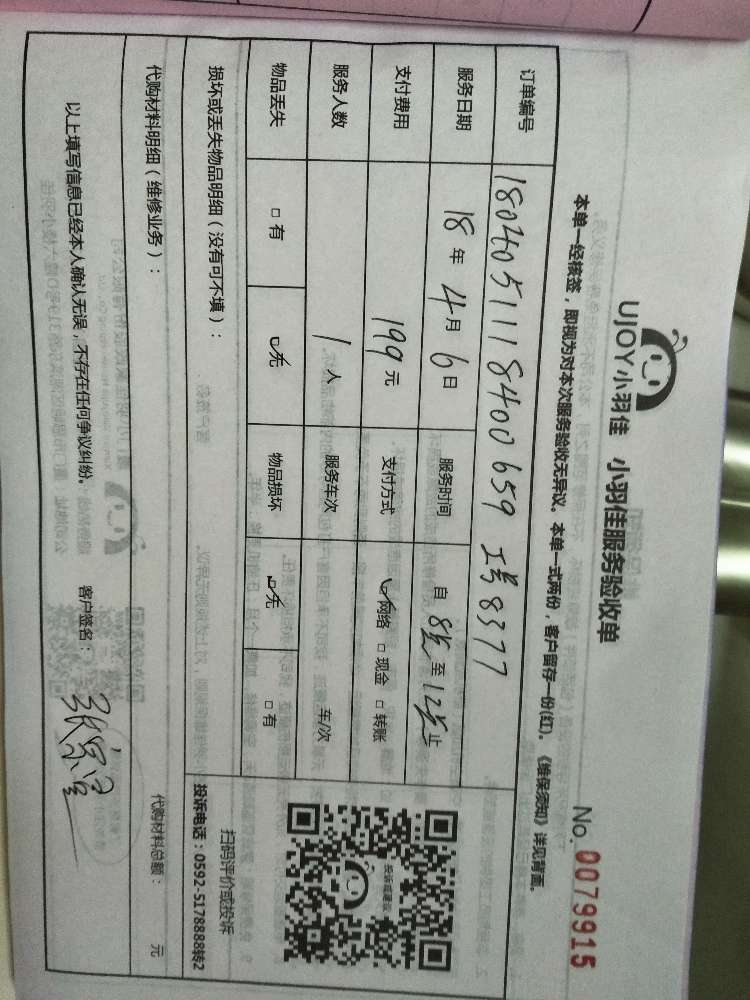 UJOY小羽佳 小羽佳服务验收单
No. 0079915
本单一经核签，即视为对本次服务验收无异议。本单一式两份，客户留存一份(红)。《维保须知》详见背面。
订单编号 1804051118400659 工号8377
服务日期 18年4月6日 服务时间 自8点至12点止
支付费用 199元 支付方式 网络 □ 现金 □ 转账
服务人数 1人 服务车次 车/次
物品丢失 □ 有 □ 无 物品损坏 □ 无 □ 有
损坏或丢失物品明细（没有可不填）：
投诉或建议
扫码评价或投诉
投诉电话：0592-5178888转2
代购材料明细（维修业务）： 代购材料总额： 元
以上填写信息已经本人确认无误，不存在任何争议纠纷。 客户签名：